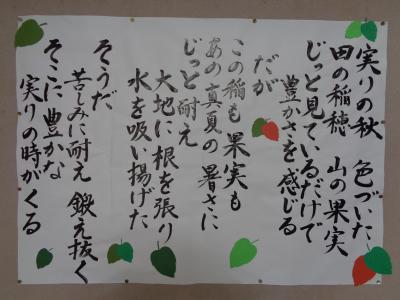 実りの秋　色づいた
田の稲穂　山の果実
じっと見ているだけで
豊かさを感じる
だが
この稲も果実も
あの真夏の暑さに
じっと耐え
大地に根を張り
水を吸い揚げた
そうだ
苦しみに耐え　鍛え抜く
そこに豊かな
実りの時がくる